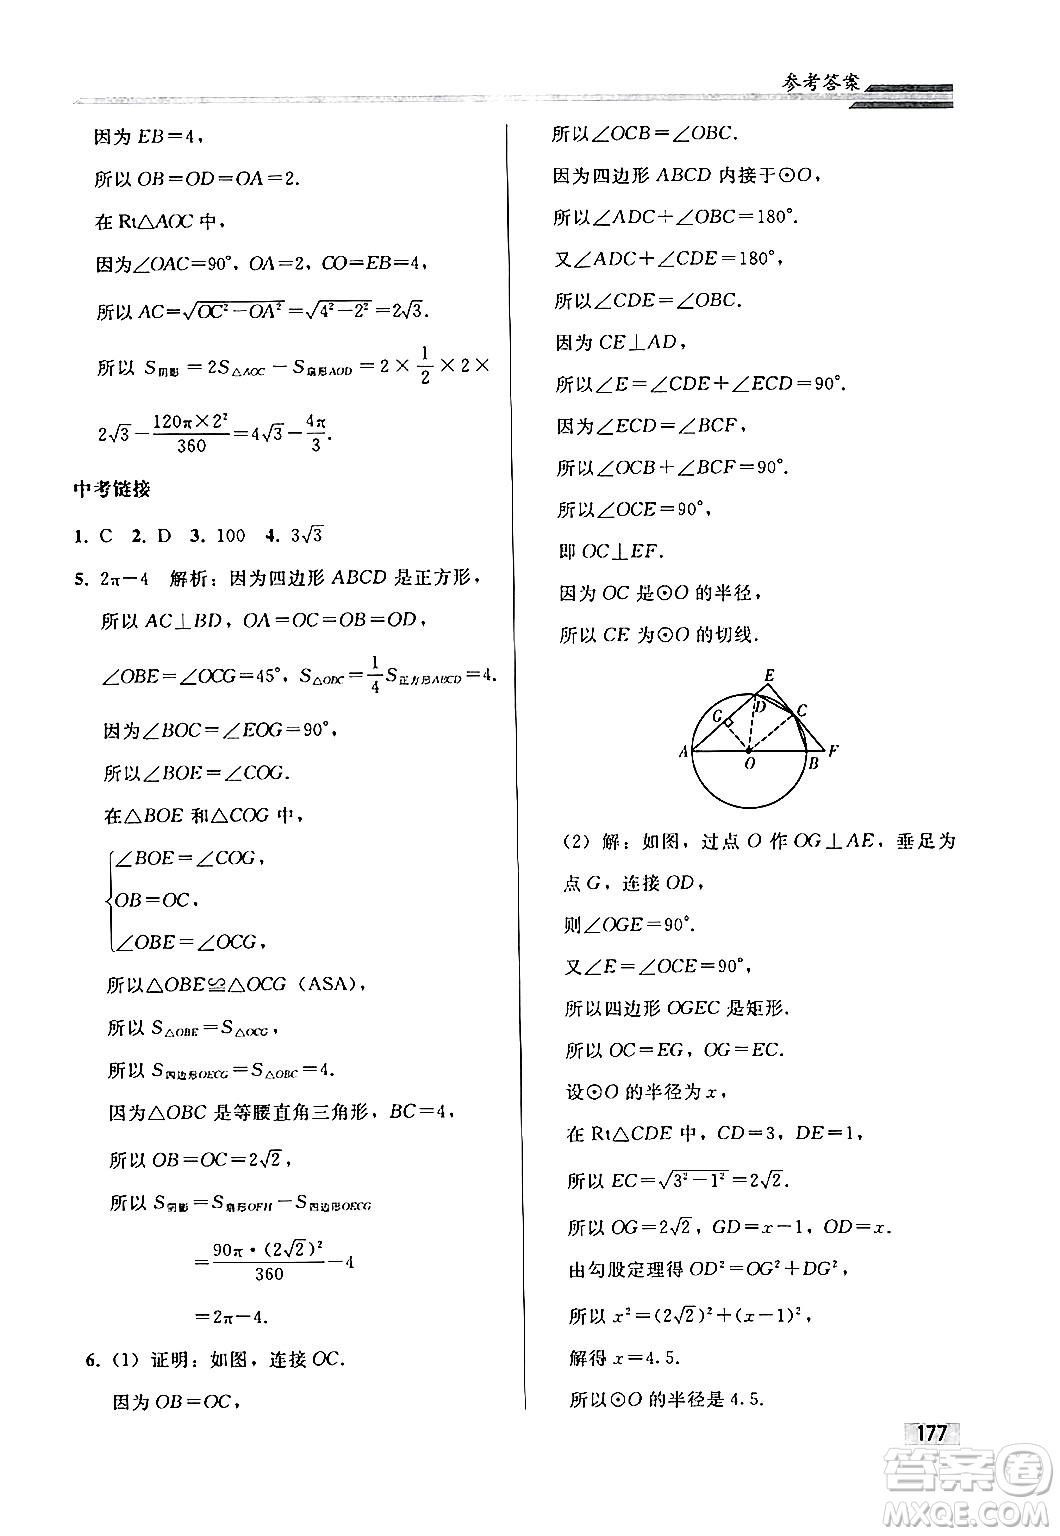 参考答案
因为 EB=4,
所以 OB=OD=OA=2.
在 Rt△AOC 中,
因为∠OAC=90°, OA=2, CO=EB=4,
所以 AC=√(OC²-OA²)=√(4²-2²)=2√3.
所以 S阴影=2S△AOC-S扇形AOD=2×1/2×2×
2√3-120π×2²/360=4√3-4π/3.
中考链接
1. C 2. D 3. 100 4. 3√3
5. 2π-4 解析:因为四边形 ABCD 是正方形,
所以 AC⊥BD, OA=OC=OB=OD,
∠OBE=∠OCG=45°, S△OBC=1/4S正方形ABCD=4.
因为∠BOC=∠EOG=90°,
所以∠BOE=∠COG.
在△BOE 和△COG 中,
∠BOE=∠COG,
OB=OC,
∠OBE=∠OCG,
所以△OBE≌△OCG (ASA),
所以 S△OBE=S△OCG,
所以 S四边形OECG=S△OBC=4.
因为△OBC 是等腰直角三角形, BC=4,
所以 OB=OC=2√2,
所以 S阴影=S扇形OFH-S四边形OECG
=90π·(2√2)²/360-4
=2π-4.
6. (1) 证明:如图,连接 OC.
因为 OB=OC,
所以∠OCB=∠OBC.
因为四边形 ABCD 内接于⊙O,
所以∠ADC+∠OBC=180°.
又∠ADC+∠CDE=180°,
所以∠CDE=∠OBC.
因为 CE⊥AD,
所以∠E=∠CDE+∠ECD=90°.
因为∠ECD=∠BCF,
所以∠OCB+∠BCF=90°.
所以∠OCE=90°,
即 OC⊥EF.
因为 OC 是⊙O 的半径,
所以 CE 为⊙O 的切线.
E
D
G
C
A
O
B
F
(2) 解:如图,过点 O 作 OG⊥AE,垂足为
点 G,连接 OD,
则∠OGE=90°.
又∠E=∠OCE=90°,
所以四边形 OGEC 是矩形.
所以 OC=EG, OG=EC.
设⊙O 的半径为 x,
在 Rt△CDE 中, CD=3, DE=1,
所以 EC=√(3²-1²)=2√2.
所以 OG=2√2, GD=x-1, OD=x.
由勾股定理得 OD²=OG²+DG²,
所以 x²=(2√2)²+(x-1)²,
解得 x=4.5.
所以⊙O 的半径是 4.5.
177
答案卷
MXQE.COM